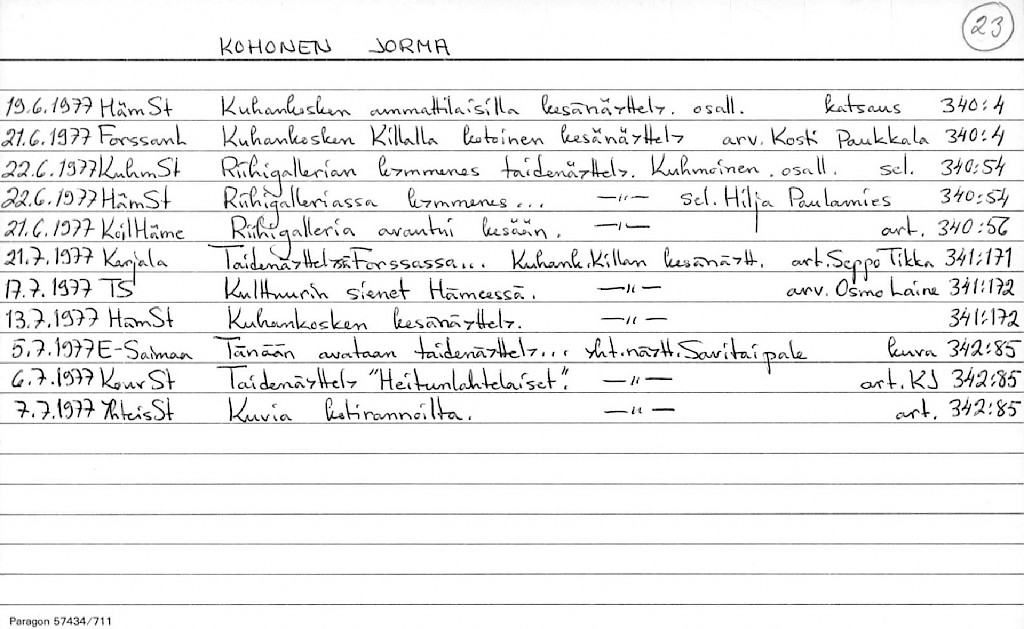 23
KOHONEN JORMA
19.6.1977 HämSt Kuhankosken ammattilaisilla kesänäyttely. osall. katsaus 340:4
21.6.1977 Forssanl Kuhankosken Killalla kotoinen kesänäyttely arv. Kosti Paukkala 340:4
22.6.1977 KuhmSt Riihigallerian kymmenes taidenäyttely. Kuhmoinen. osall. sel. 340:54
22.6.1977 HämSt Riihigalleriassa kymmenes... —"— sel. Hilja Paulamies 340:54
21.6.1977 KoilHäme Riihigalleria avautui kesään. —"— art. 340:56
21.7.1977 Karjala Taidenäyttelyssä Forssassa... Kuhank. Killan kesänäytt. art. Seppo Tikka 341:171
17.7.1977 TS Kulttuurin sienet Hämeessä. —"— arv. Osmo Laine 341:172
13.7.1977 HämSt Kuhankosken kesänäyttely. —"— 341:172
5.7.1977 E-Saimaa Tänään avataan taidenäyttely... yht.näytt. Savitaipale kuva 342:85
6.7.1977 KouvSt Taidenäyttely "Heitunlahtelaiset". —"— art. KJ 342:85
7.7.1977 YhteisSt Kuvia kotirannoilta. —"— art. 342:85
Paragon 57434/711